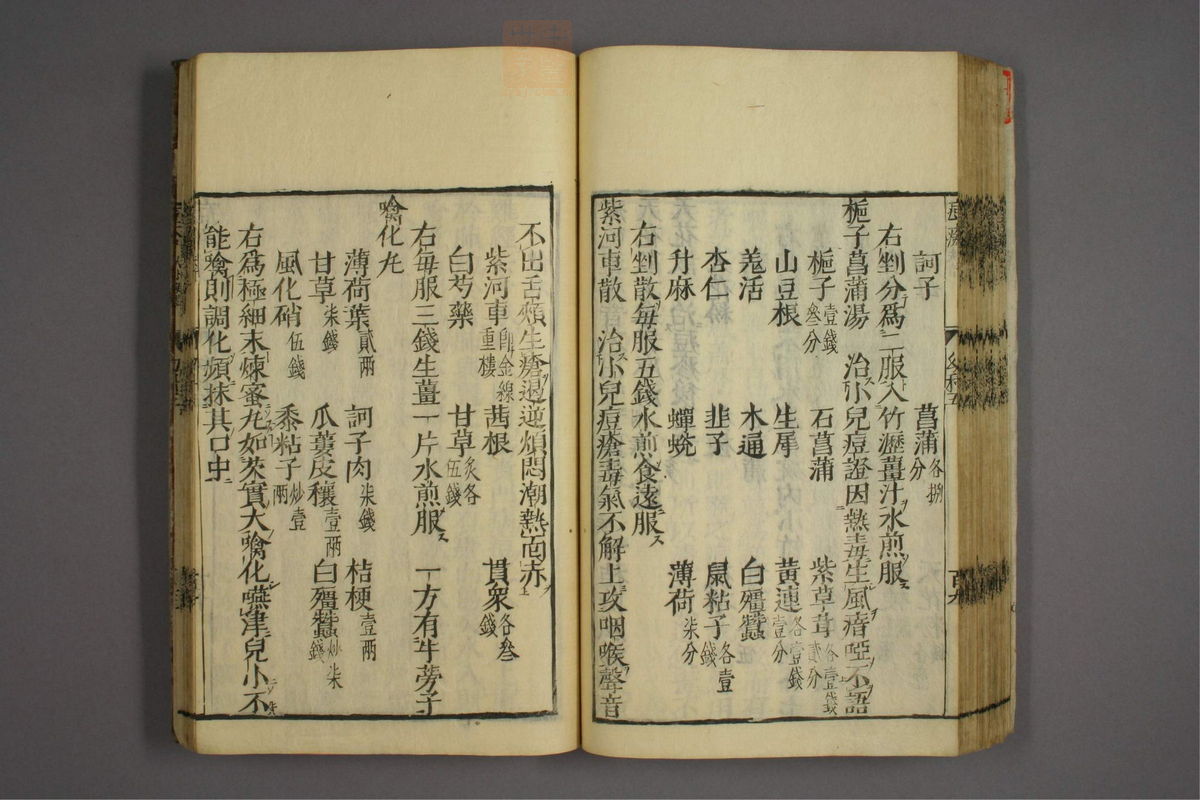 訶子 菖蒲各捌分
右剉分爲二服入竹瀝薑汁水煎服
梔子菖蒲湯 治小兒痘證因熱毒生風瘖啞不語
梔子壹錢叄分 石菖蒲 紫草茸各壹錢貳分
山豆根 生犀 黃連各壹錢壹分
羗活 木通 白殭蠶
杏仁 韭子 鼠粘子各壹錢
升麻 蟬蛻 薄荷柒分
右剉散每服五錢水煎食遠服
紫河車散 治小兒痘瘡毒氣不解上攻咽喉聲音
不出舌頰生瘡退逆煩悶潮熱面赤
紫河車卽金線重樓 茜根 貫衆各叄錢
白芍藥 甘草炙各伍錢
右每服三錢生薑一片水煎服 一方有牛蒡子
噙化丸
薄荷葉貳兩 訶子肉柒錢 桔梗壹兩
甘草柒錢 瓜蔞皮穰壹兩 白殭蠶炒柒錢
風化硝伍錢 黍粘子炒壹兩
右爲極細末煉蜜丸如芡實大噙化嚥津兒小不
能噙則調化頻抹其口中